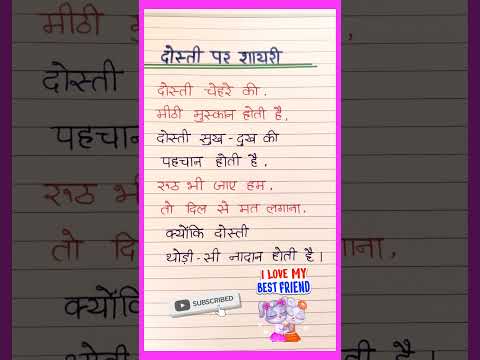 दोस्ती पर शायरी
दोस्ती चेहरे की,
मीठी मुस्कान होती है,
दोस्ती सुख-दुख की
पहचान होती है,
रूठ भी जाए हम,
तो दिल से मत लगाना,
क्योंकि दोस्ती
थोड़ी-सी नादान होती है।
I LOVE MY
BEST FRIEND
SUBSCRIBED